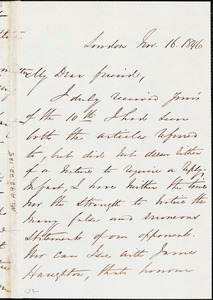 London Nov. 16. 1846
My Dear friend,
I duly received yours
of the 10th I had seen
both the articles referred
to, but did not deem either
of a nature to require a reply.
In fact, I have neither the time
nor the strength to notice the
many false and erroneous
statements of our opponents.
We can see with James
Haughton, that honour
Ms. A.9.2.22.125